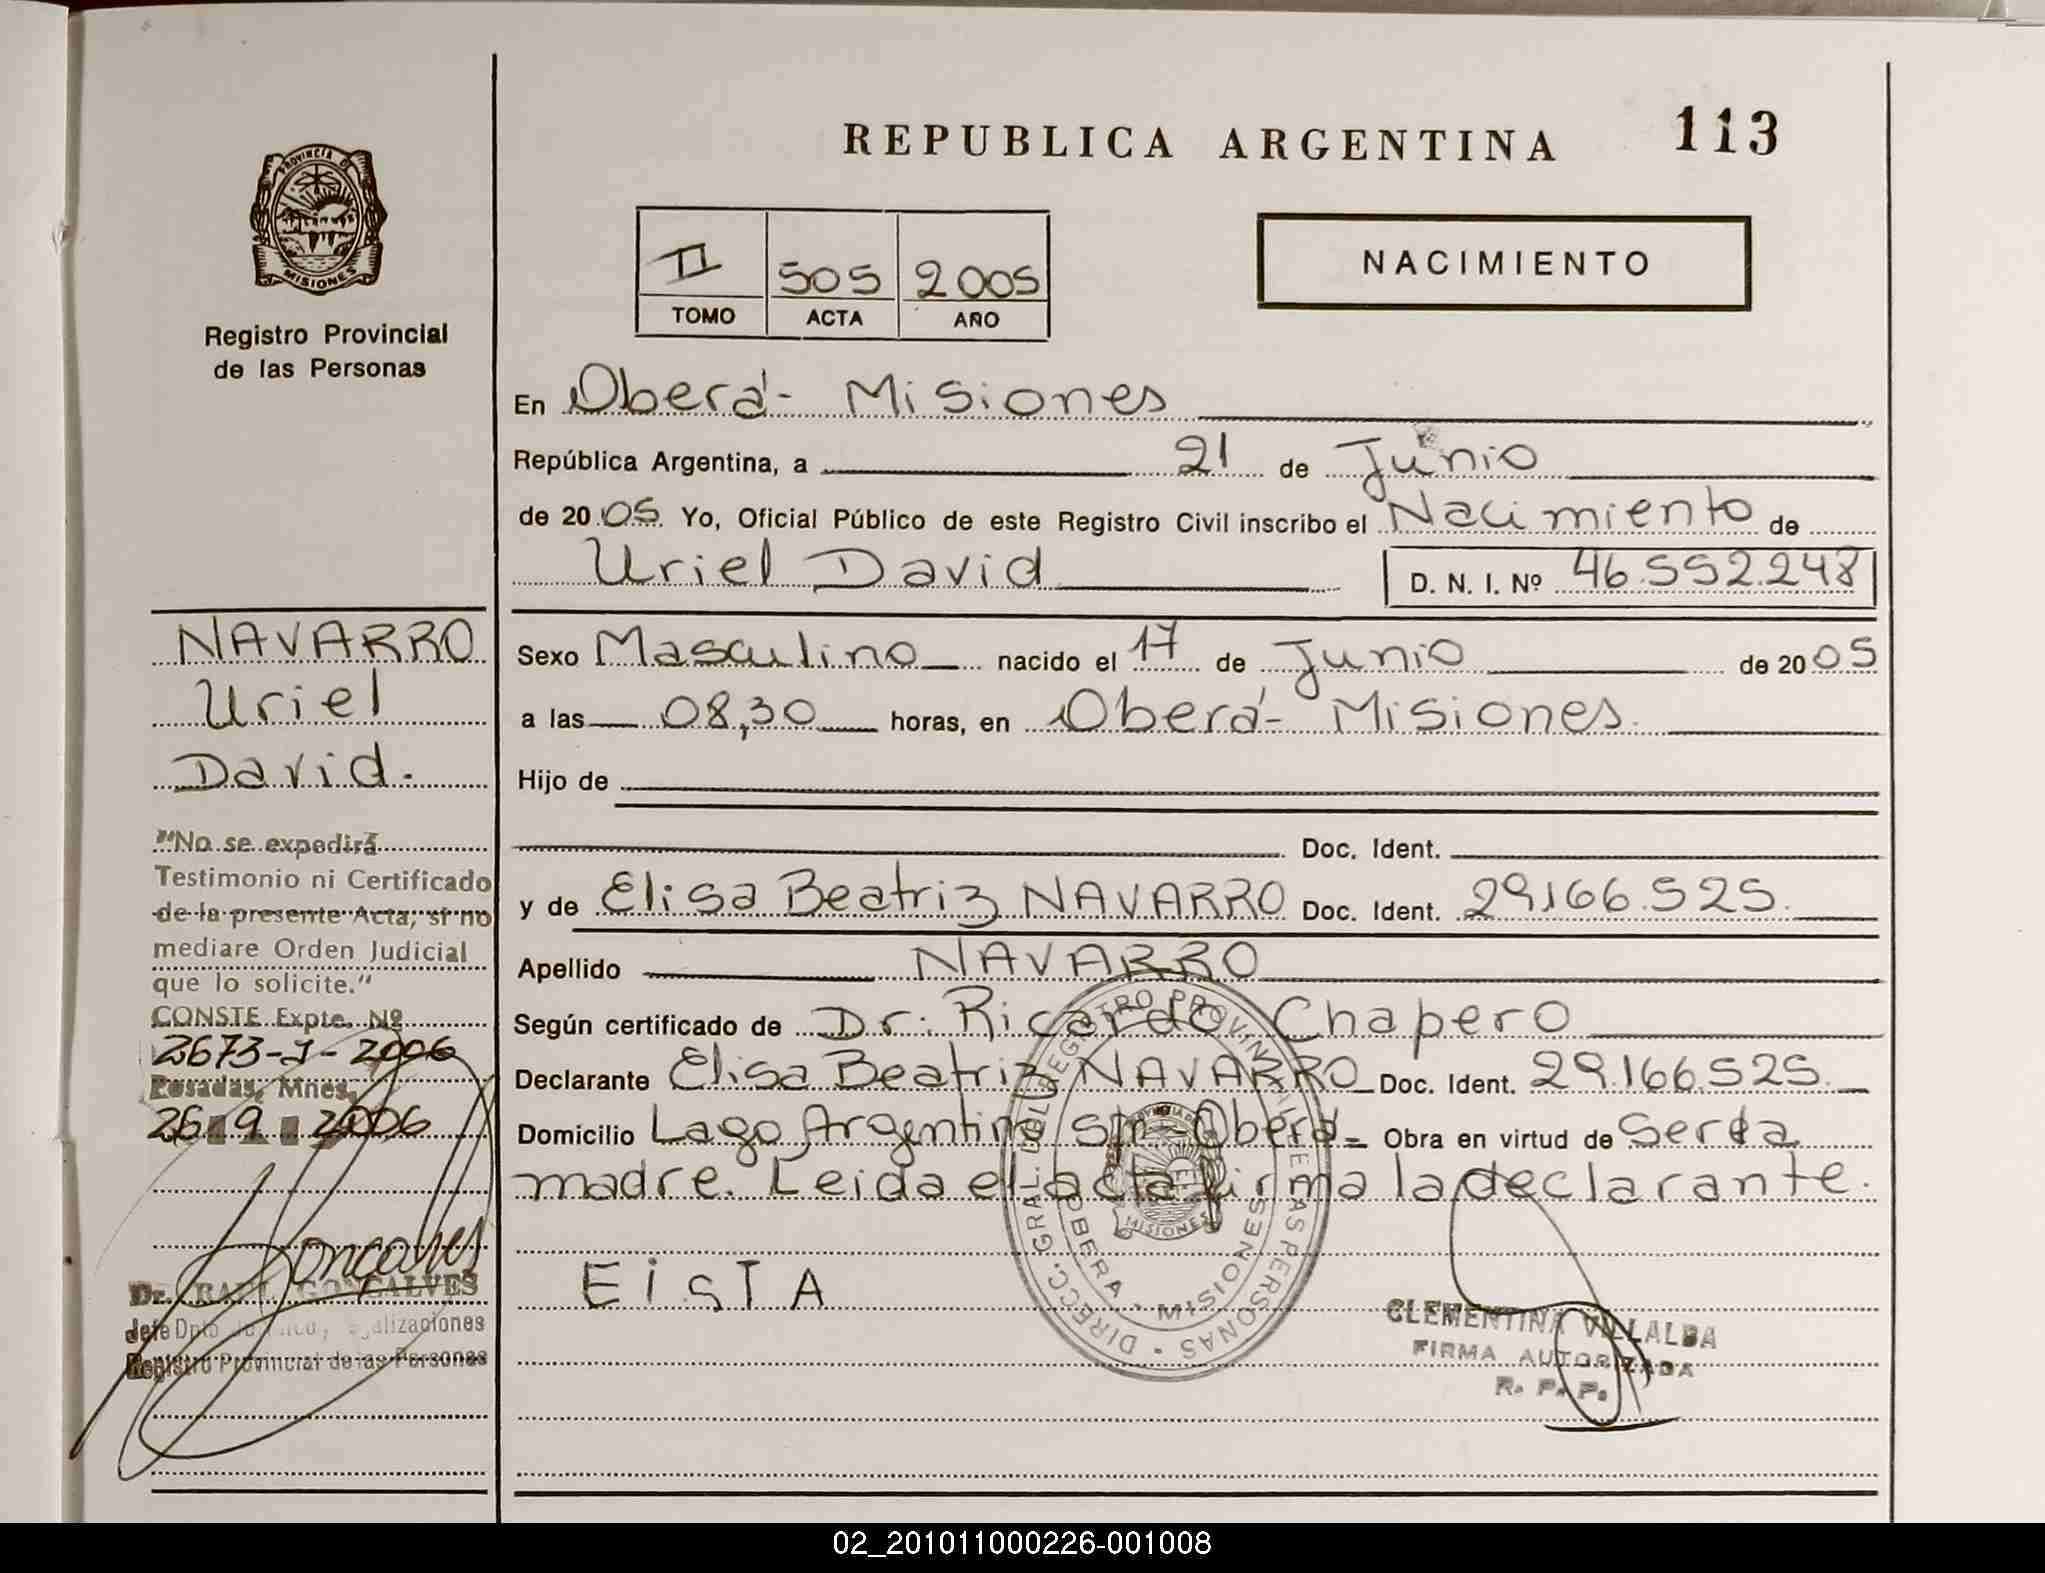 REPUBLICA ARGENTINA 113
PROVINCIA DE
MISIONES
Registro Provincial
de las Personas
II 505 2005
TOMO ACTA AÑO
NACIMIENTO
En Oberá- Misiones
República Argentina, a 21 de Junio
de 2005 Yo, Oficial Público de este Registro Civil inscribo el Nacimiento de
Uriel David D. N. I. Nº 46.552.248
NAVARRO
Uriel
David.
"No se expedirá
Testimonio ni Certificado
de la presente Acta, si no
mediare Orden Judicial
que lo solicite."
CONSTE Expte. Nº
2673-J-2006
Posadas, Mnes,
26 9 2006
Goncalves
Dr. RAUL GONCALVES
Jefe Dpto
Registro Provincial de las Personas
Sexo Masculino nacido el 17 de Junio de 2005
a las 08,30 horas, en Oberá- Misiones.
Hijo de
Doc. Ident.
y de Elisa Beatriz NAVARRO Doc. Ident. 29.166.525.
Apellido NAVARRO
Según certificado de Dr. Ricardo Chapero
Declarante Elisa Beatriz NAVARRO Doc. Ident. 29.166.525.
Domicilio Lago Argentino S/n-Oberá- Obra en virtud de Ser la
madre. Leida el acta firma la declarante.
EiSTA
DIRECC. GRAL. DEL REGISTRO PROVINCIAL DE LAS PERSONAS
OBERA - MISIONES
MISIONES
CLEMENTINA VILLALBA
FIRMA AUTORIZADA
R. P. P.
02_201011000226-001008